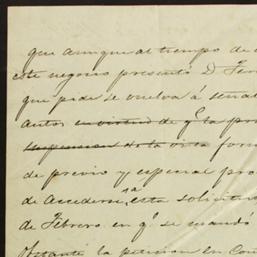 que aunque al tiempo de
este negocio presentó D. Fer
que pide se vuelva á señal
autos en virtud de qe la pro
suspension de la vista form
de previo y especial pro
de Accederse á esta solicitu
de Febrero en qe se mandó
Obstante la peticion en Con